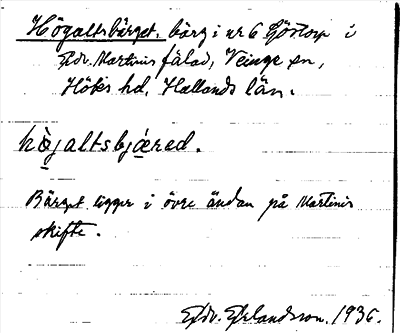 Högaltsbärget, bärg i nr 6 Göstorp i
Edv. Martinis fälad, Veinge sn,
Höks hd, Hallands län.
hògaltsbjæred.
Bärget ligger i övre ändan på Martinis
skifte.
Edv. Erlandsson. 1936.